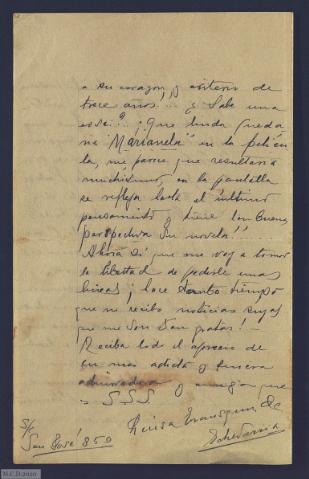 a su corazon, y criterio de
trece años... ¿Sabe una
cosa?.. ¡Que linda queda
ria "Marianela" en la pelicu
la, me parece que resultaria
muchisimo, en la pantalla
se refleja hasta el último
pensamiento y tiene tan buena
perspectiva su novela!!
Ahora si que me voy a tomar
la libertad de pedirle unas
lineas; hace tanto tiempo
que no recibo noticias suyas
que me son tan gratas! -
Reciba todo el aprecio de
su mas adicta y sincera
admiradora y amiga que
S S S
Luisa de
Echevarria
S/c
San José 850
M.C.D 2020